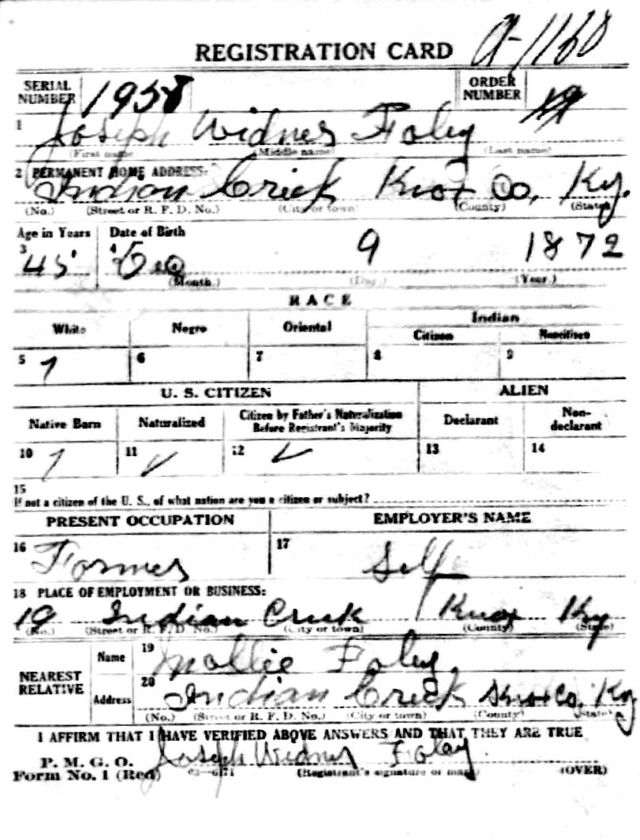 REGISTRATION CARD A-1160
SERIAL NUMBER 1958 ORDER NUMBER
1 Joseph Widner Foley
(First name) (Middle name) (Last name)
2 PERMANENT HOME ADDRESS:
Indian Crick Knox Co. Ky.
(No.) (Street or R. F. D. No.) (City or town) (County) (State)
Age in Years Date of Birth
3 45 4 Dec 9 1872
(Month.) (Day.) (Year.)
RACE
White Negro Oriental Indian
Citizen Noncitizen
5 6 7 8 9
U. S. CITIZEN ALIEN
Native Born Naturalized Citizen by Father's Naturalization Before Registrant's Majority Declarant Non-declarant
10 11 ✓ 12 ✓ 13 14
15
If not a citizen of the U. S., of what nation are you a citizen or subject?
PRESENT OCCUPATION EMPLOYER'S NAME
16 Farmer 17 Self
18 PLACE OF EMPLOYMENT OR BUSINESS:
19 Indian Crick Knox Ky
(No.) (Street or R. F. D. No.) (City or town) (County) (State)
NEAREST RELATIVE Name 19 Mollie Foley
Address 20 Indian Crick Knox Co. Ky
(No.) (Street or R. F. D. No.) (City or town) (County) (State)
I AFFIRM THAT I HAVE VERIFIED ABOVE ANSWERS AND THAT THEY ARE TRUE
P. M. G. O.
Form No. 1 (Red) Joseph Widner Foley
(Registrant's signature or mark) (OVER)